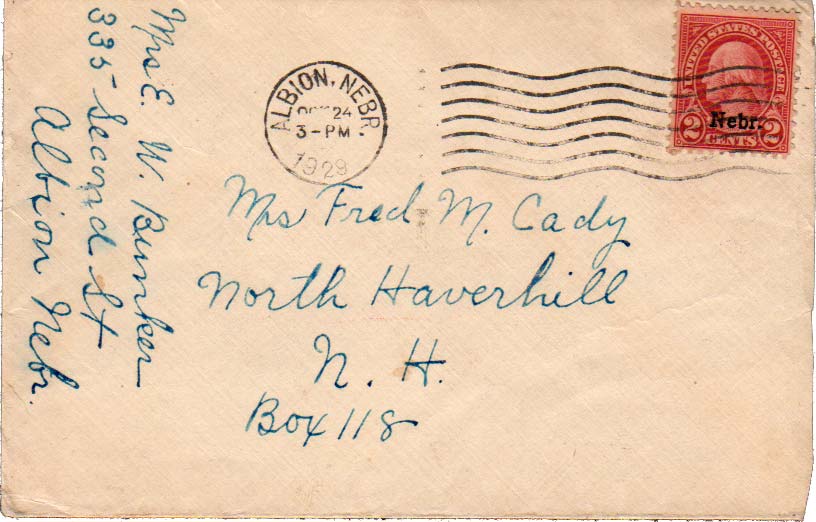 Mrs E. W. Bunker
335 Second St
Albion Nebr.
ALBION, NEBR.
24
3-PM
1929
UNITED STATES POSTAGE
Nebr.
2 CENTS 2
Mrs Fred M. Cady
North Haverhill
N. H.
Box 118